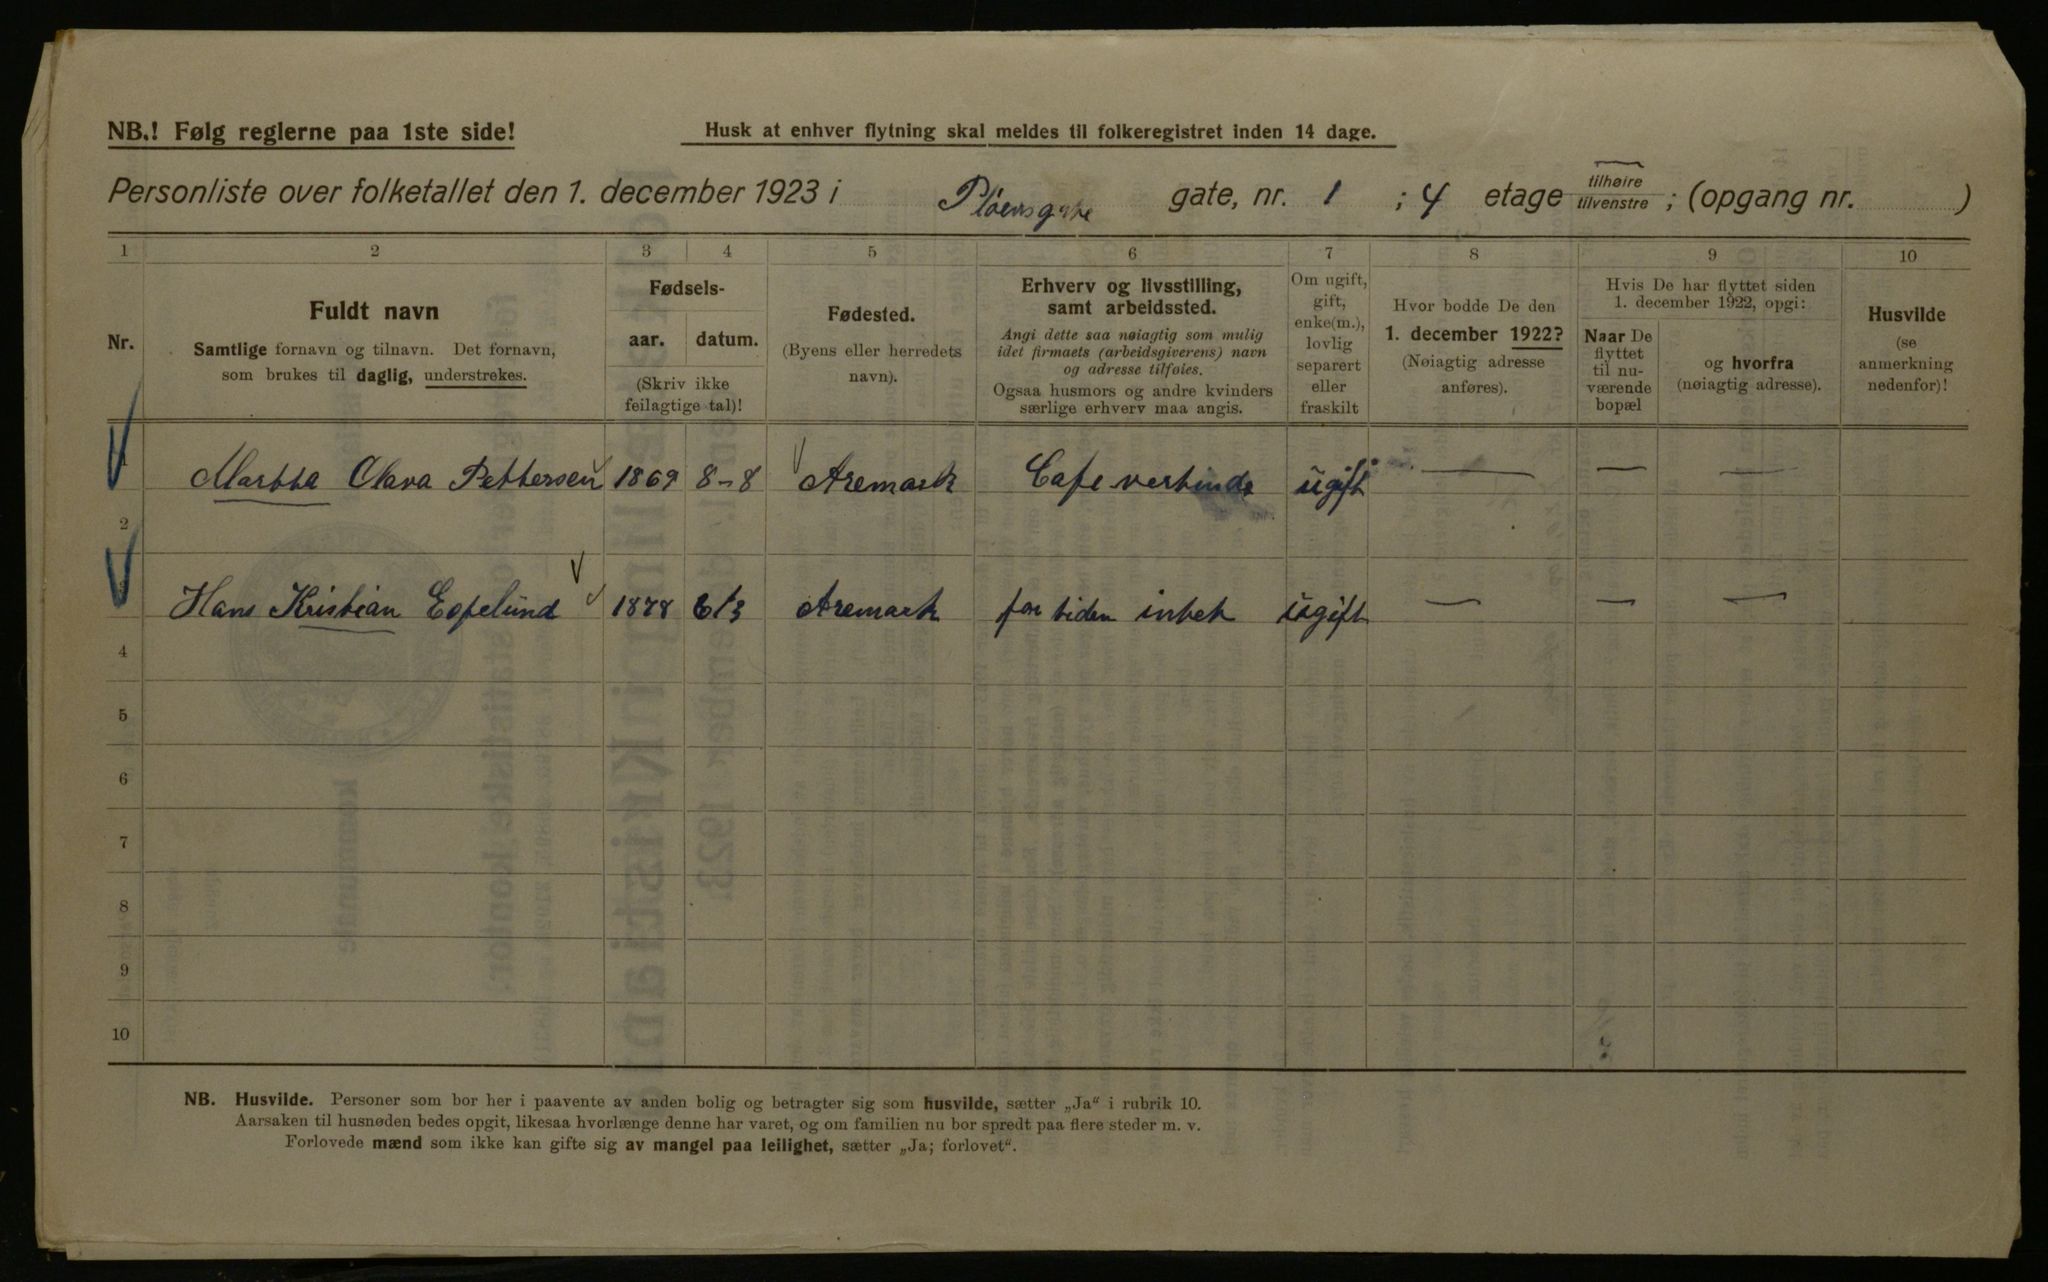 NB.! Følg reglerne paa 1ste side!
Husk at enhver flytning skal meldes til folkeregistret inden 14 dage.
Personliste over folketallet den 1. december 1923 i Pløensgate gate, nr. 1 ; 4 etage tilhøire tilvenstre ; (opgang nr. )
1 2 3 4 5 6 7 8 9 10
Nr.
Fuldt navn
Samtlige fornavn og tilnavn. Det fornavn,
som brukes til daglig, understrekes.
Fødsels-
aar. datum.
(Skriv ikke
feilagtige tal)!
Fødested.
(Byens eller herredets
navn).
Erhverv og livsstilling,
samt arbeidssted.
Angi dette saa nøiagtig som mulig
idet firmaets (arbeidsgiverens) navn
og adresse tilføies.
Ogsaa husmors og andre kvinders
særlige erhverv maa angis.
Om ugift,
gift,
enke(m.),
lovlig
separert
eller
fraskilt
Hvor bodde De den
1. december 1922?
(Nøiagtig adresse
anføres).
Hvis De har flyttet siden
1. december 1922, opgi:
Naar De
flyttet
til nu-
værende
bopæl
og hvorfra
(nøiagtig adresse).
Husvilde
(se
anmerkning
nedenfor)!
1 Martha Olava Pettersen 1869 8-8 Aremark Cafe vertinde ugift — — —
2
Hans Kristian Espelund 1878 6/3 Aremark for tiden intet ugift — — —
4
5
6
7
8
9
10
NB. Husvilde. Personer som bor her i paavente av anden bolig og betragter sig som husvilde, sætter „Ja“ i rubrik 10.
Aarsaken til husnøden bedes opgit, likesaa hvorlænge denne har varet, og om familien nu bor spredt paa flere steder m. v.
Forlovede mænd som ikke kan gifte sig av mangel paa leilighet, sætter „Ja; forlovet“.